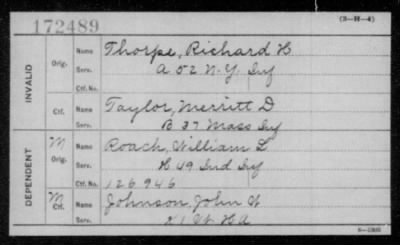 172489
(3-H-4)
INVALID
Orig.
Name Thorpe, Richard H
Serv. A 52 N.Y. Inf
Ctf. No.
Ctf.
Name Taylor, Merritt D
Serv. B 37 Mass Inf
DEPENDENT
M
Orig.
Name Roach, William L
Serv. H 49 Ind Inf
Ctf. No. 126946
M
Ctf.
Name Johnson, John
Serv. H A